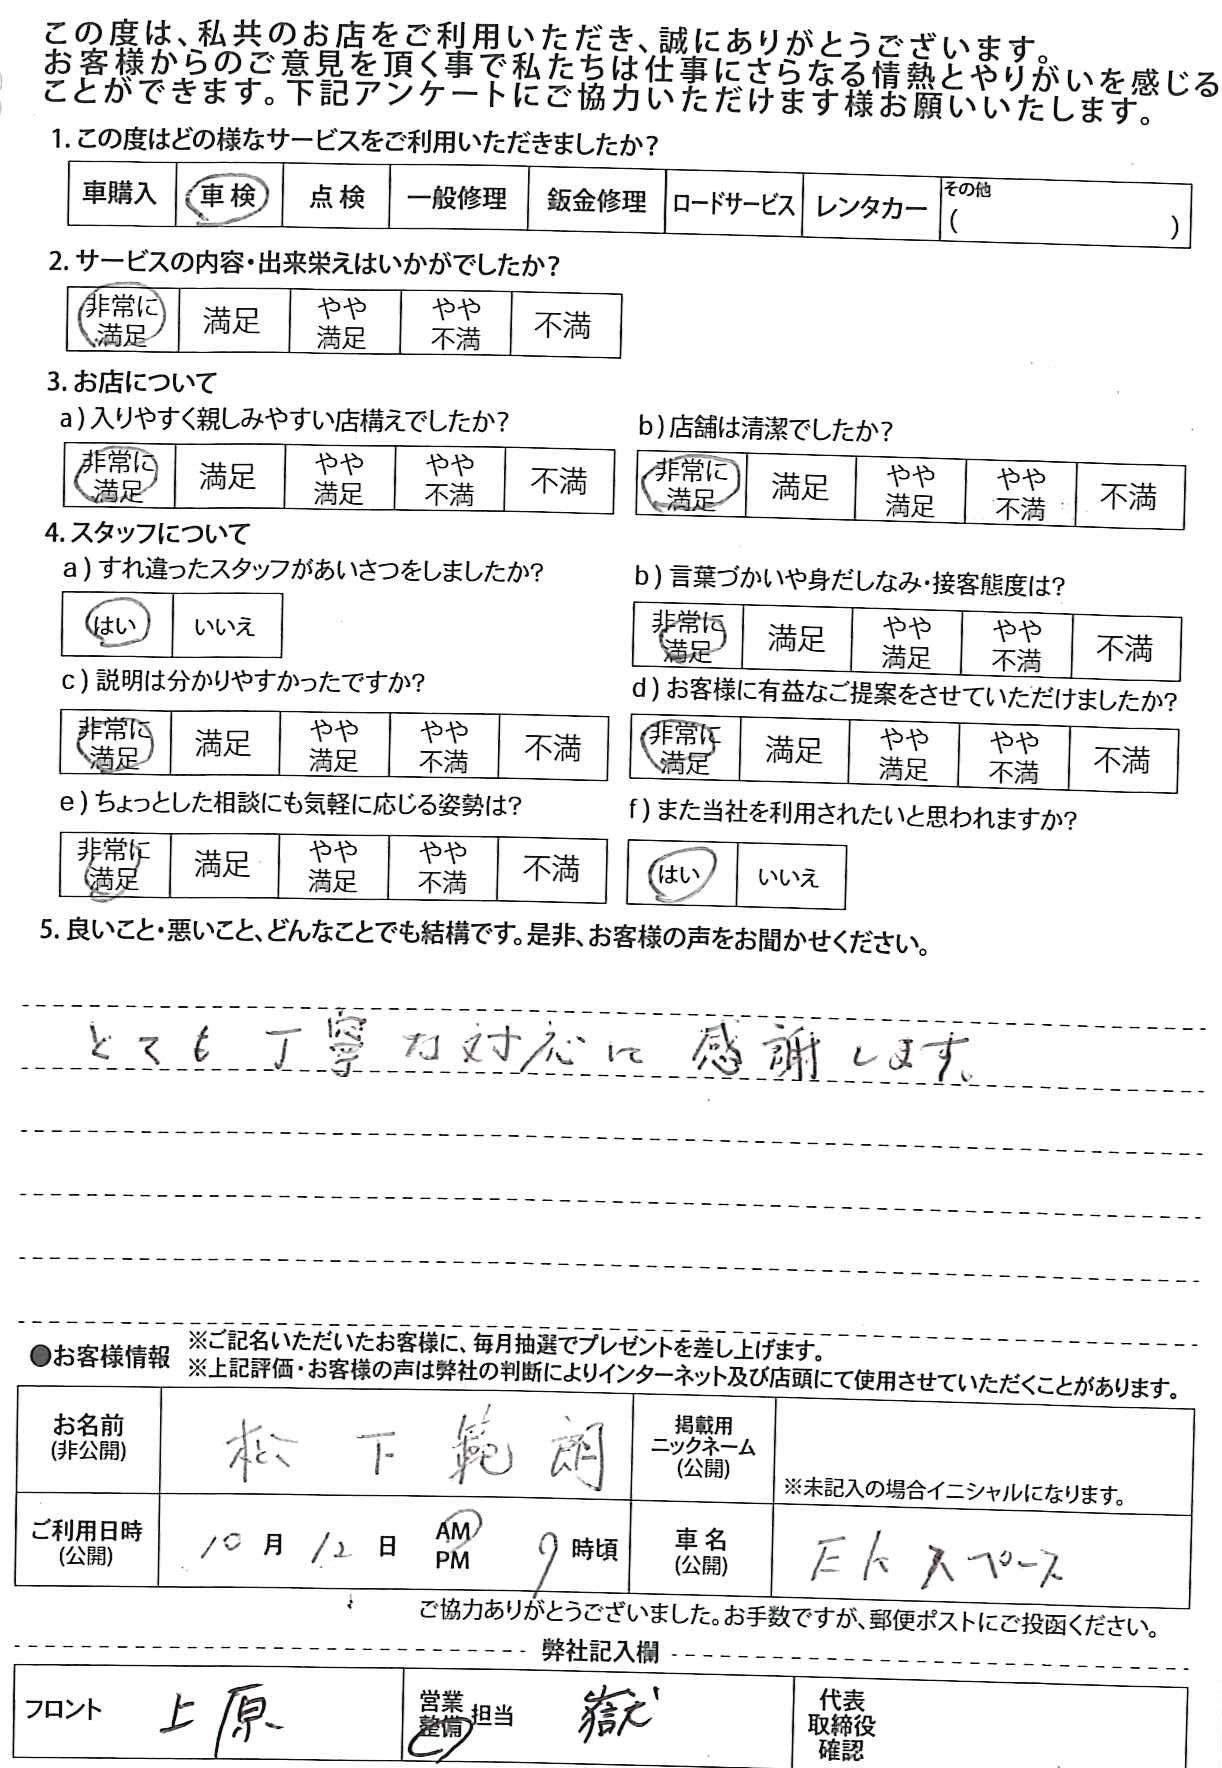 この度は、私共のお店をご利用いただき、誠にありがとうございます。
お客様からのご意見を頂く事で私たちは仕事にさらなる情熱とやりがいを感じる
ことができます。下記アンケートにご協力いただけます様お願いいたします。
1. この度はどの様なサービスをご利用いただきましたか?
車購入 車検 点検 一般修理 鈑金修理 ロードサービス レンタカー その他 ( )
2. サービスの内容・出来栄えはいかがでしたか?
非常に満足 満足 やや満足 やや不満 不満
3. お店について
a) 入りやすく親しみやすい店構えでしたか?
非常に満足 満足 やや満足 やや不満 不満
b) 店舗は清潔でしたか?
非常に満足 満足 やや満足 やや不満 不満
4. スタッフについて
a) すれ違ったスタッフがあいさつをしましたか?
はい いいえ
b) 言葉づかいや身だしなみ・接客態度は?
非常に満足 満足 やや満足 やや不満 不満
c) 説明は分かりやすかったですか?
非常に満足 満足 やや満足 やや不満 不満
d) お客様に有益なご提案をさせていただけましたか?
非常に満足 満足 やや満足 やや不満 不満
e) ちょっとした相談にも気軽に応じる姿勢は?
非常に満足 満足 やや満足 やや不満 不満
f) また当社を利用されたいと思われますか?
はい いいえ
5. 良いこと・悪いこと、どんなことでも結構です。是非、お客様の声をお聞かせください。
とても丁寧な対応に感謝します。
●お客様情報
※ご記名いただいたお客様に、毎月抽選でプレゼントを差し上げます。
※上記評価・お客様の声は弊社の判断によりインターネット及び店頭にて使用させていただくことがあります。
お名前(非公開) 松下範朗
掲載用ニックネーム(公開) ※未記入の場合イニシャルになります。
ご利用日時(公開) 10月12日 AM PM 9時頃
車名(公開) Ekスペース
ご協力ありがとうございました。お手数ですが、郵便ポストにご投函ください。
弊社記入欄
フロント 上原
営業 整備 担当 嶽
代表取締役確認